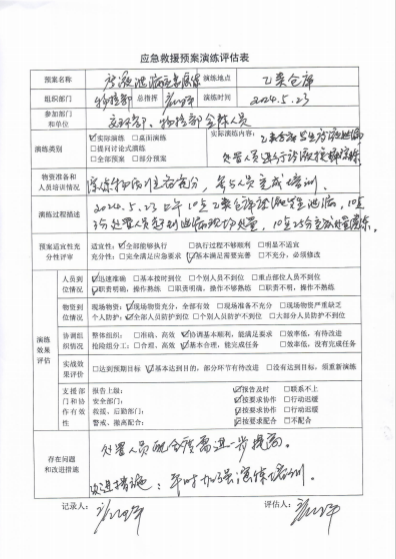 应急救援预案演练评估表
预案名称 演练地点 乙类仓库
组织部门 物控部 总指挥 演练时间 2024.5.23
参加部门和单位 物控部全体人员
演练类别 ☑实际演练 □桌面演练 实际演练内容:
□提问讨论式演练
□全部预案 □部分预案
物资准备和人员培训情况 人员完成培训.
演练过程描述 2024.5.23上午10点
预案适宜性充分性评审 适宜性:☑全部能够执行 □执行过程不够顺利 □明显不适宜
充分性:□完全满足应急要求 ☑基本满足需要完善 □不充分,必须修改
演练效果评估
人员到位情况 ☑迅速准确 □基本按时到位 □个别人员不到位 □重点部位人员不到位
☑职责明确,操作熟练 □职责明确,操作不够熟练 □职责不明,操作不熟练
物资到位情况 现场物资:☑现场物资充分,全部有效 □现场准备不充分 □现场物资严重缺乏
个人防护:☑全部人员防护到位 □个别人员防护不到位 □大部分人员防护不到位
协调组织情况 整体组织:□准确、高效 ☑协调基本顺利,能满足要求 □效率低,有待改进
抢险组分工:□合理、高效 ☑基本合理,能完成任务 □效率低,没有完成任务
实战效果评价 □达到预期目标 ☑基本达到目的,部分环节有待改进 □没有达到目标,须重新演练
支援部门和协作有效性 报告上级: ☑报告及时 □联系不上
安全部门: ☑按要求协作 □行动迟缓
救援、后勤部门: ☑按要求协作 □行动迟缓
警戒、撤离配合: ☑按要求配合 □不配合
存在问题和改进措施 处置人员配合度需进一步提高.
改进措施:平时加强演练培训.
记录人: 评估人: